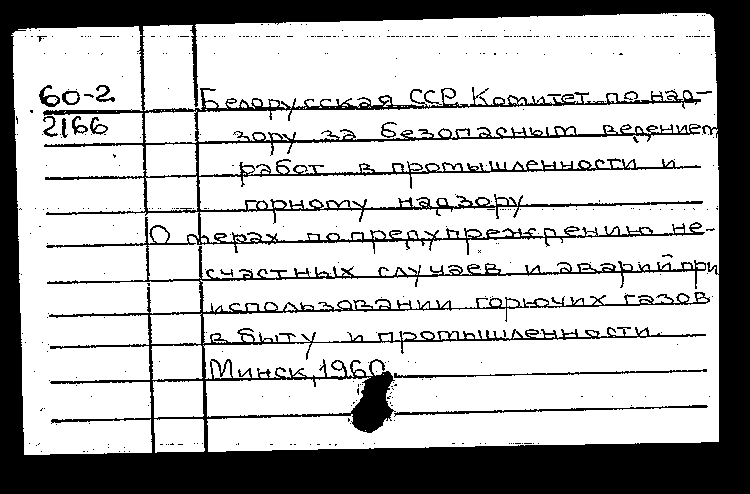 60-2
2166
Белорусская ССР. Комитет по над-
зору за безопасным ведением
работ в промышленности и
горному надзору
О мерах по предупреждению не-
счастных случаев и аварий при
использовании горючих газов
в быту и промышленности.
Минск, 1960.